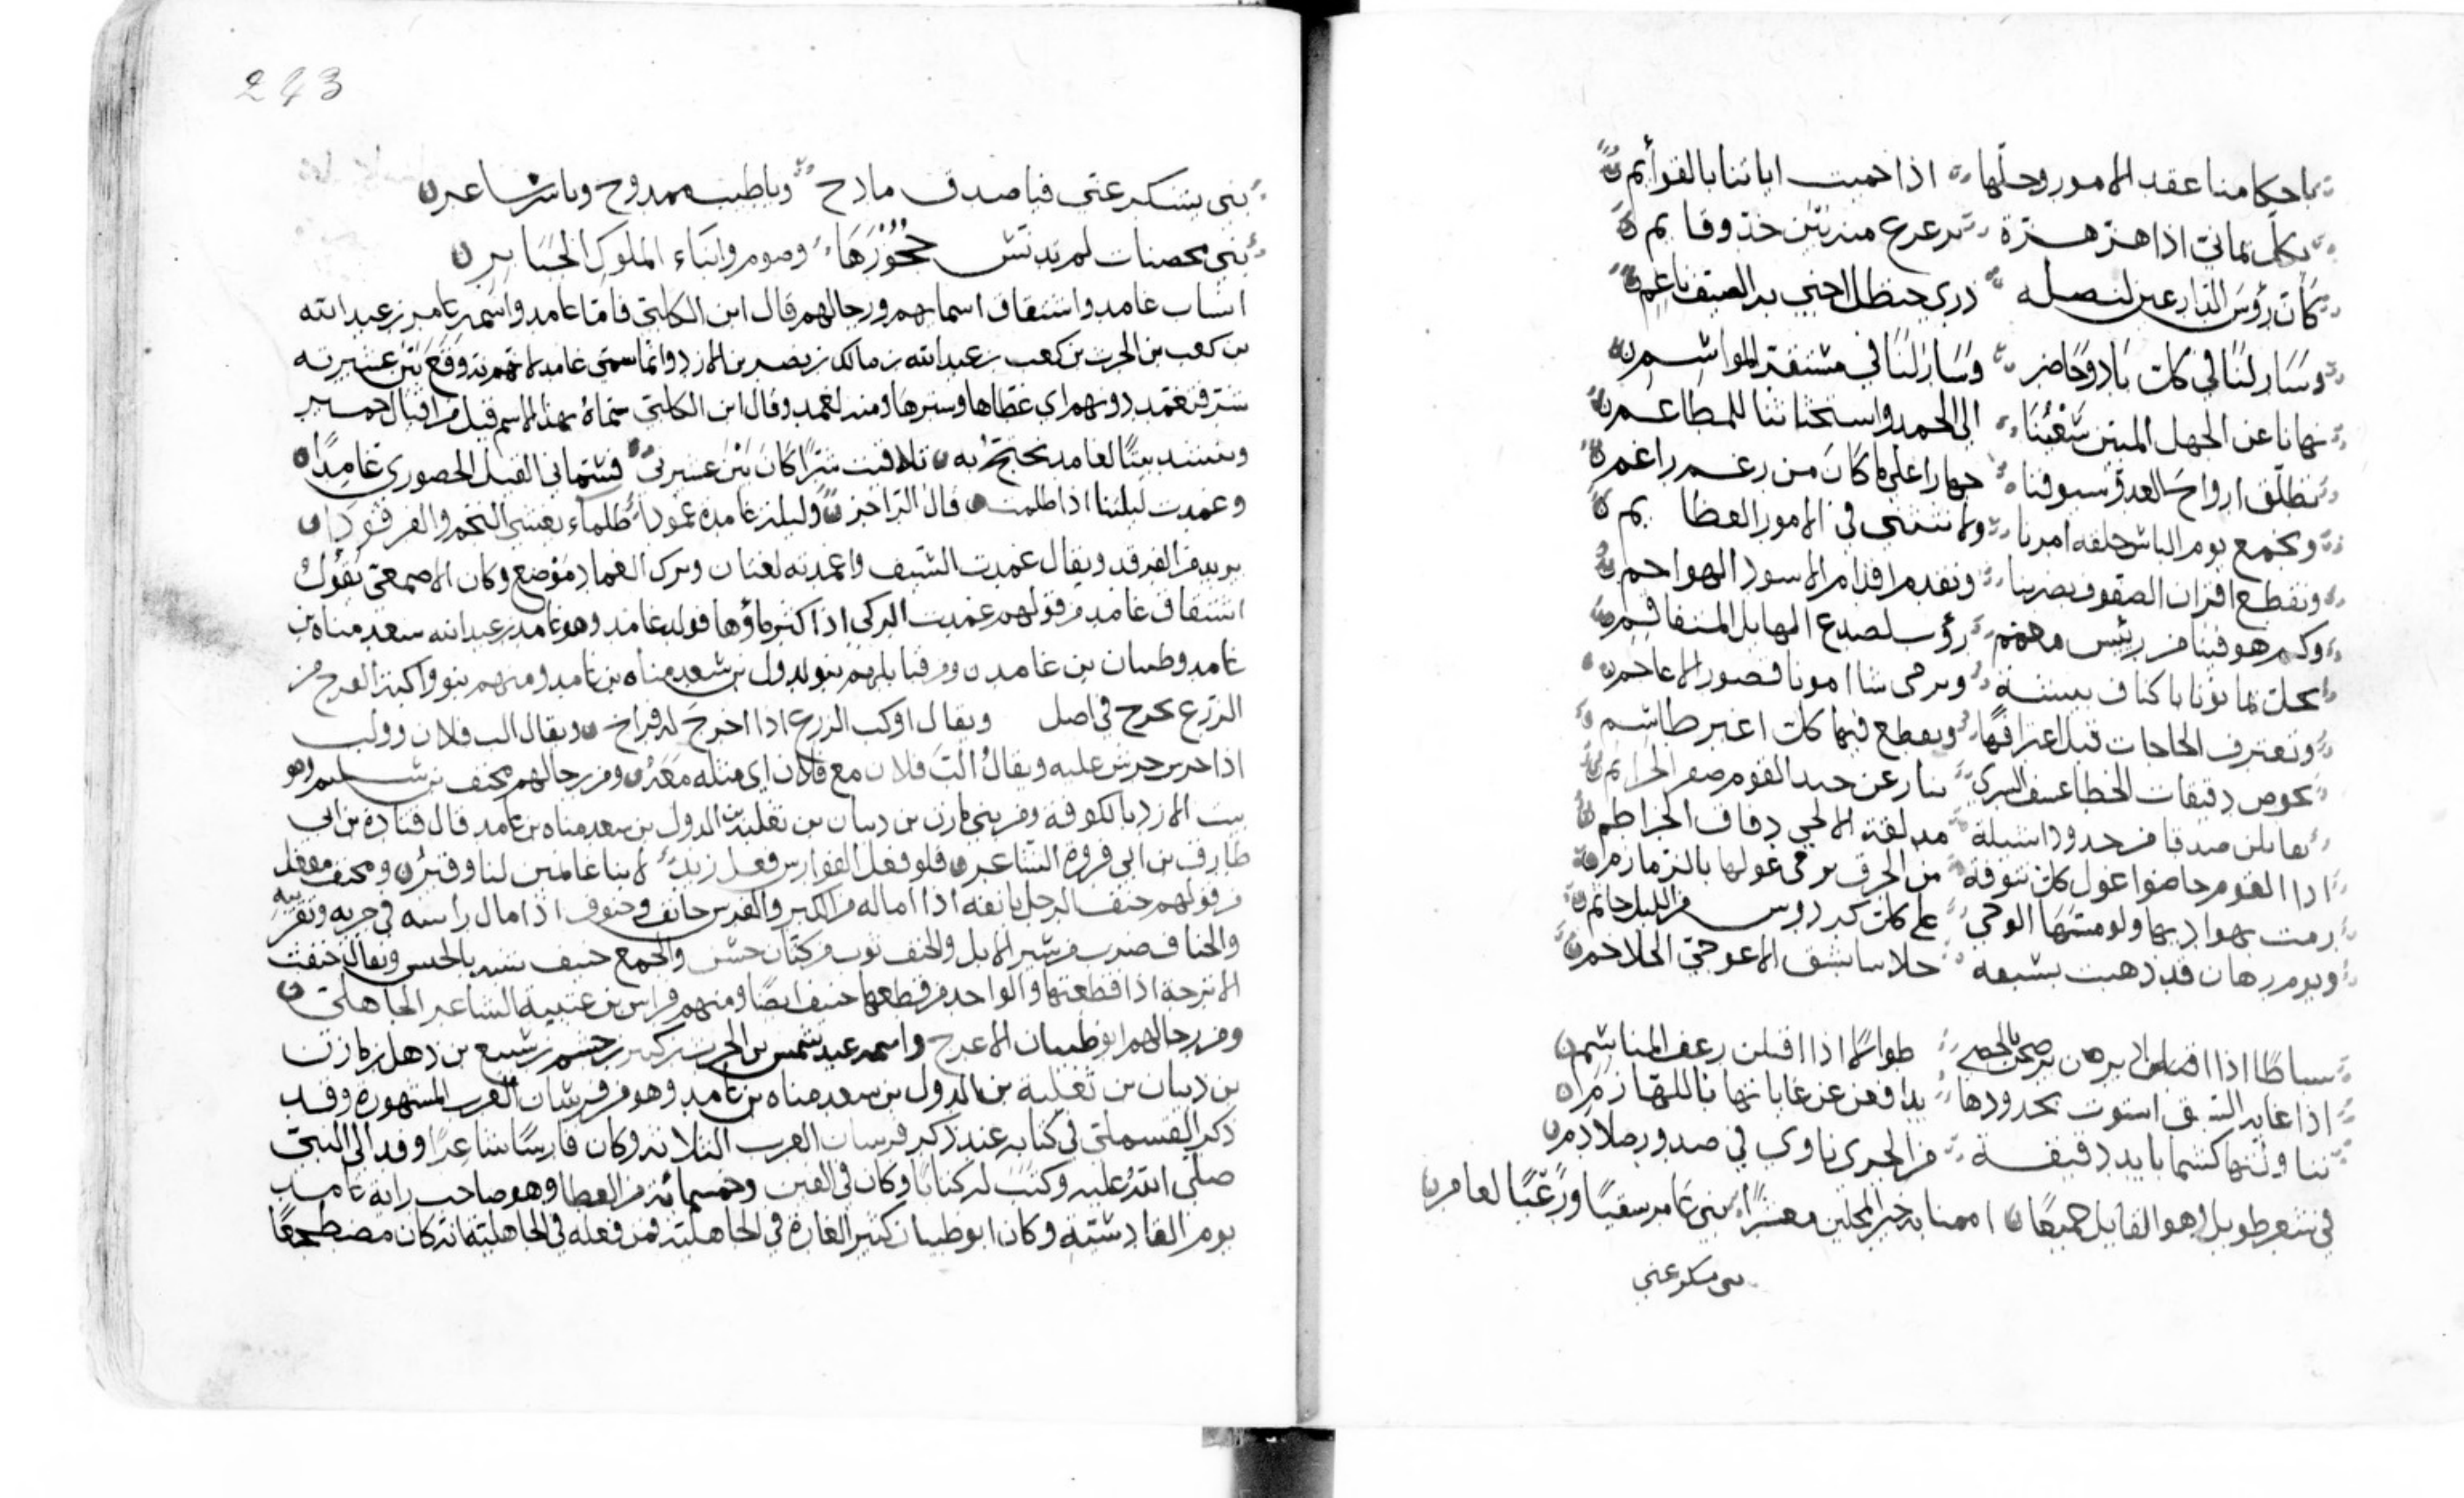 باحكامنا عقد الامور وحلّها اذا حميت اباتنا بالقوائم
بكل يماني اذا هز هزة ترعرع منه بين حد وقايم
كان رؤس الدارعين لنصله ذرى حنظل اجني به الصيف ناعم
وسار لنا في كل باد وحاضر وسار لنا في مشنقة المواسم
نهانا عن الجهل المبين الى الحمد واستحثاثنا للمطاعم
تطلق ارواح العدو سيوفنا جهارا على ما كان من رغم راغم
ونجمع يوم الباس حلفه امرنا ولا ننثني في الامور العظايم
ونقطع اقران الصفوف بضربنا ونقدم اقدام الاسود الهواحم
وكم هو فينا من رئيس رؤب لصدع الهايل المتفاقم
نحل بماثونا باكناف بيشة ونرمي شاامونا قصور الاعاجم
ونعترف الحاجات قبل اعترافها ونقطع فيها كل اغبر طاسم
بخوص دقيقات الخطا عسف السرى
يقابلن صدقا من خدود اسيلة مدلقة الالحي دقاق الخراطم
اذا القوم خاضوا غول كل تنوفة من الخرق يرمي غولها بالزمازم
رمت بهواديها على كل كردوس من الليل جاثم
ويوم رهان قد ذهبت بسبقه الاعوجي الجلاجم
اذا اقبلن رعف المناسم
اذا غاية السبق استوت بحدودها يدافعن عن غاياتها باللهازم
تناولتها كشما بايد دقيقة من الجري تاوي في صدور صلادم
في شعر طويل وهو القايل جميعا بني عامر سقيا ورغبا لعامر
بني يشكر عني
243
بني يشكر عني فيا صدق مادح ويا طيب ممدوح ويا شر شاعر
بني محصنات لم تدنس حجورها وصوم وابناء الملوك الجبابر
انساب غامد واشتقاق اسمايهم ورجالهم قال ابن الكلبي فاما غامد واسمه عامر بن عبد الله
بن كعب بن الحرث بن كعب بن عبد الله بن مالك بن نصر بن الازد وانما سمي غامد لانه وقع بين عشيرته
شر فتغمد ذنوبهم اي غطاها وسترها ومنه الغمد وقال ابن الكلبي سماه بهذا الاسم قيل من اقيال حمير
وينشد بيتا لغامد يحتج به تلافيت شرا كان بين عشيرتي فسماني القيل الحضوري غامدا
وغمدت ليلتنا اذا اظلمت قال الراجز وليلة غامدة غمودا ظلماء يغشي النجم والفرقودا
يريد الفرقد ويقال غمدت السيف واغمدته لغتان وبرك الغماد موضع وكان الاصمعي يقول
اشتقاق غامد من قولهم غمدت الركي اذا كثر ماؤها فولد غامد وهو غامد بن عبد الله سعد مناه بن
غامد وظبيان بن غامد ومن قبايلهم بنو الدول بن سعد مناه بن غامد ومنهم بنو والبة
الزرع يخرج في اصل ويقال اوكب الزرع اذا اخرج له فراخ ويقال الب فلان وولب
اذا حرش عليه ويقال الب فلان مع فلان اي ميله معه ومن رجالهم مخنف بن سليم وهو
بيت الازد بالكوفة ومن بني مازن بن دبيان بن ثعلبة بن الدول بن سعد مناه بن غامد قال قتادة بن ابي
طارق بن ابي فروة الشاعر فلو فعل الفوارس فعل زيد لابنا غانمين لنا وقير ومخنف مفعل
من قولهم خنف الرجل بانفه اذا اماله من الكبر والفرس خانف وخنوف اذا مال راسه في جريه وتقريبه
والخناف ضرب من سير الابل والخنف ثوب من كتان خشن والجمع خنف ويقال خنفت
الاترجة اذا قطعتها والواحد من قطعها خنيف ايضا ومنهم فراس بن عتيبة الشاعر الجاهلي
ومن رجالهم ابو ظبيان الاعرج واسمه عبد شمس بن الحرث بن كبير بن جشم بن سبيع بن دهل بن مازن
بن دبيان بن ثعلبة بن الدول بن سعد مناه بن غامد وهو من فرسان العرب المشهورة وقد
ذكره القسملي في كتابه عند ذكر فرسان العرب الثلاثة وكان فارسا شاعرا وفد الى النبي
صلى الله عليه وكتب له كتابا وكان في الفين وخمسمائة من العطا وهو صاحب راية غامد
يوم القادسية وكان ابو ظبيان كثير الغارة في الجاهلية فمن فعله في الجاهلية انه كان مضطجعا